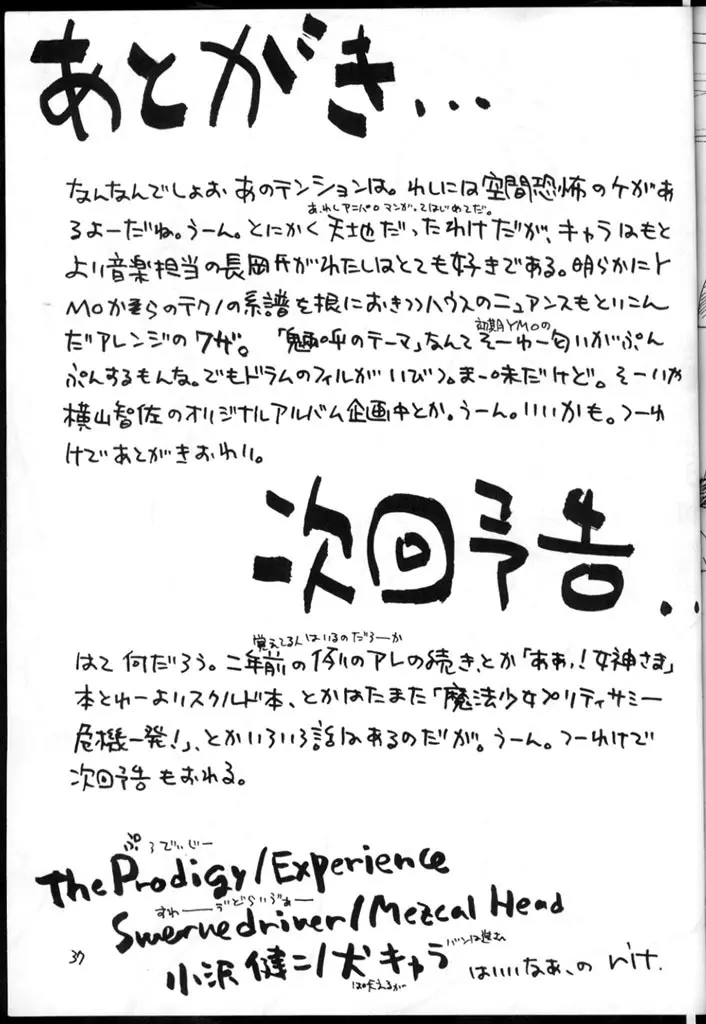 あとがき...
なんなんでしょお あのテンションは。わしには空間恐怖のケがあ
あ、わしアニパロマンガってはじめてだ。
るよーだね。うーん。とにかく天地だったわけだが、キャラはもと
より音楽担当の長岡氏がわたしはとても好きである。明らかにY
MOか垂らのテクノの系譜を根におきつつハウスのニュアンスもとりこん
初期YMOの
だアレンジのワザ。「魎呼のテーマ」なんてそーゆー匂いがぷん
ぷんするもんな。でもドラムのフィルがいびつ。まー味だけど。そーいや
横山智佐のオリジナルアルバム企画中とか。うーん。いいかも。つーわ
けであとがきおわり。
次回予告..
覚えてる人はいるのだろーか
はて何だろう。二年前の例のアレの続き、とか「ああっ!女神さま」
本とゆーよりスクルド本、とかはたまた「魔法少女プリティサミー
危機一発!」、とかいろいろ話はあるのだが。うーん。つーわけで
次回予告もおわる。
ぷろでぃじー
The Prodigy/Experience
すわーヴどらいヴぁー
Swervedriver/Mezcal Head
バンは進む
小沢健二/犬キャラ はいいなあ、の
は吠えるが
37